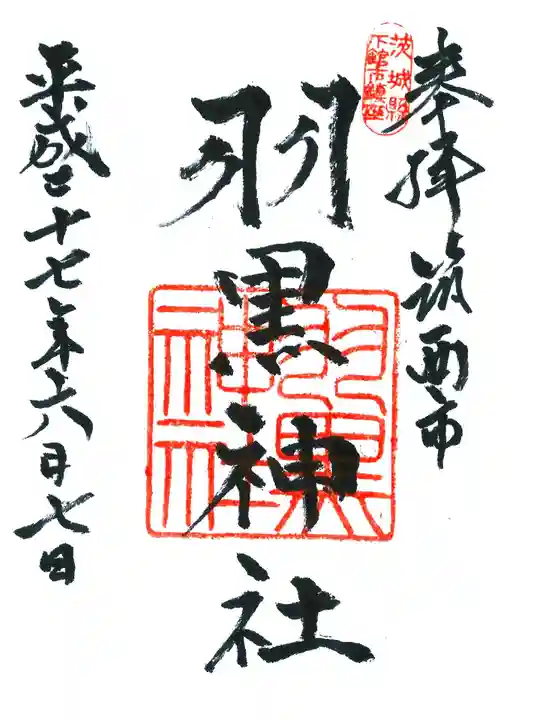 奉拝 筑西市
茨城縣
下館市鎮座
羽黒神社
羽黒神社
平成二十七年六月七日